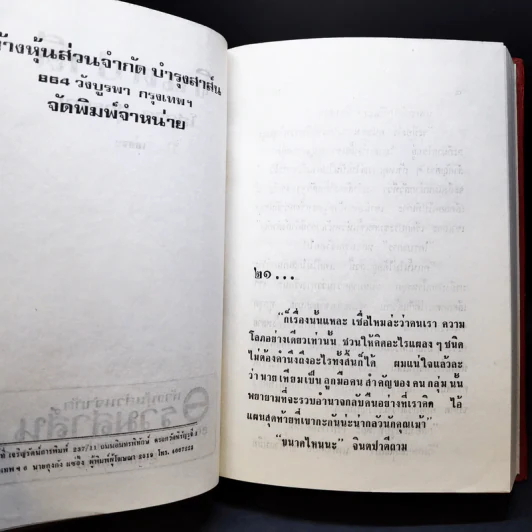 ห้างหุ้นส่วนจำกัด บำรุงสาส์น
864 วังบูรพา กรุงเทพฯ
จัดพิมพ์จำหน่าย
รวมสาส์น
๒๑...
"ก็เรื่องนั้นแหละ เชื่อไหมล่ะว่าคนเรา ความ
โลภอย่างเดียวเท่านั้น ชวนให้คิดอะไรแผลง ๆ ชนิด
ไม่ต้องคำนึงถึงอะไรทั้งสิ้นก็ได้ ผมแน่ใจแล้วละ
ว่า นาย เทียม เป็น ลูกมือ คน สำคัญ ของ คน กลุ่ม นั้น
พยายามที่จะรวบอำนาจกลับคืนอย่างที่เราคิด ไอ้
แผนสุดท้ายที่เขากะกันน่ะน่ากลัวนักคุณเม้า"
"ขนาดไหนนะ" จินตปาตีถาม